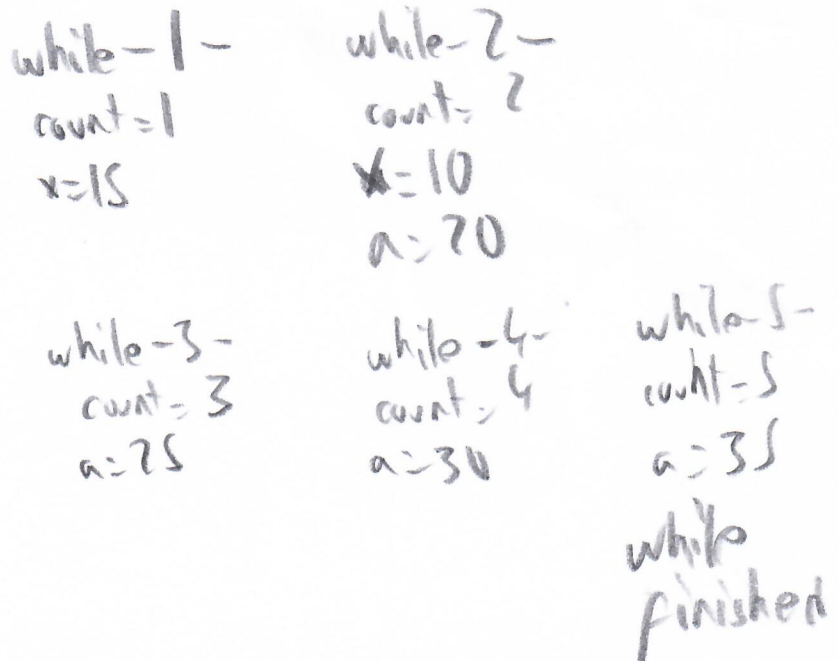 while-1-
count=1
x=15
while-2-
count=2
x=10
a=20
while-3-
count=3
a=25
while-4-
count=4
a=30
while-5-
count=5
a=35
while
finished